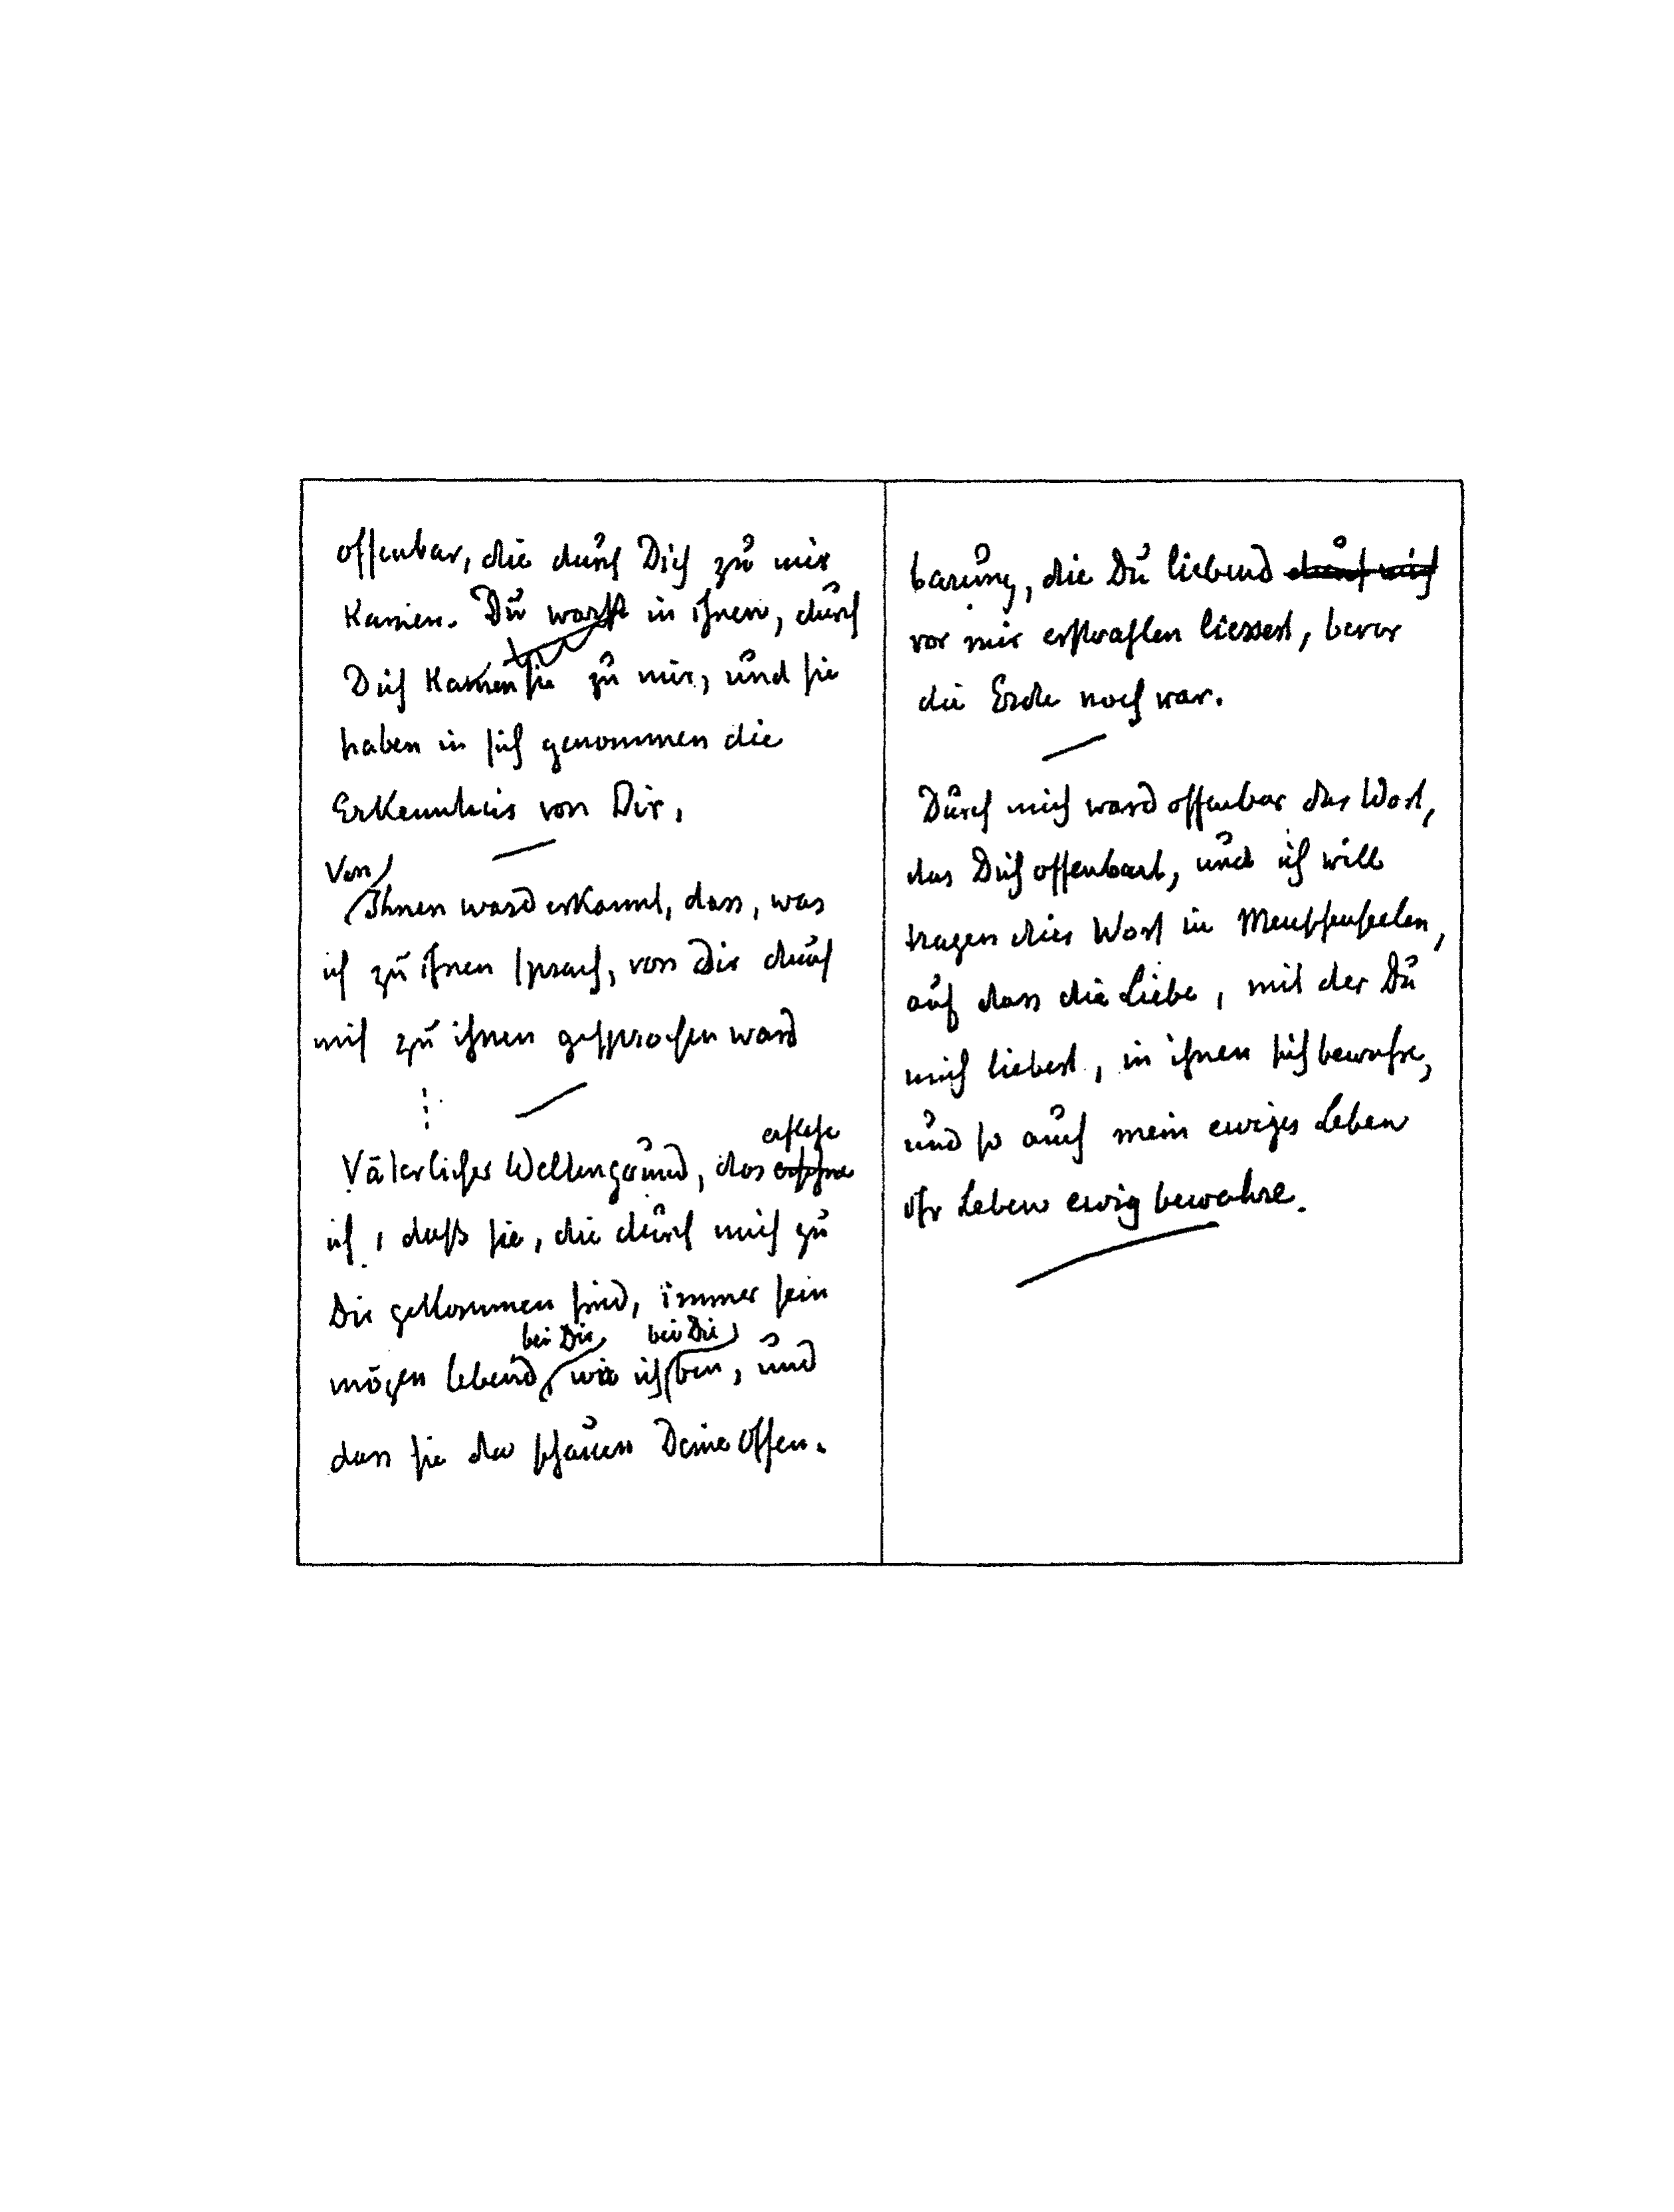 offenbar, die durch Dich zu mir
kamen. Du warst in ihnen, durch
Dich kamen sie zu mir, und sie
haben in sich genommen die
Erkenntnis von Dir,
Von
Ihnen ward erkannt, dass, was
ich zu ihnen sprach, von Dir durch
mich zu ihnen gesprochen ward
erflehe
Väterlicher Weltengrund, das
ich, daß sie, die durch mich zu
Dir gekommen sind, immer sein
bei Dir bei Dir
mögen lebend, wie ich bin, und
dass sie da schauen Deine Offen-
barung, die Du liebend durch mich
vor mir erstrahlen liessest, bevor
die Erde noch war.
Durch mich ward offenbar das Wort,
das Dich offenbart, und ich will
tragen dies Wort in Menschenseelen,
auf dass die Liebe, mit der Du
mich liebest, in ihnen sich bewahre,
und so auch mein ewiges Leben
ihr Leben ewig bewahre.